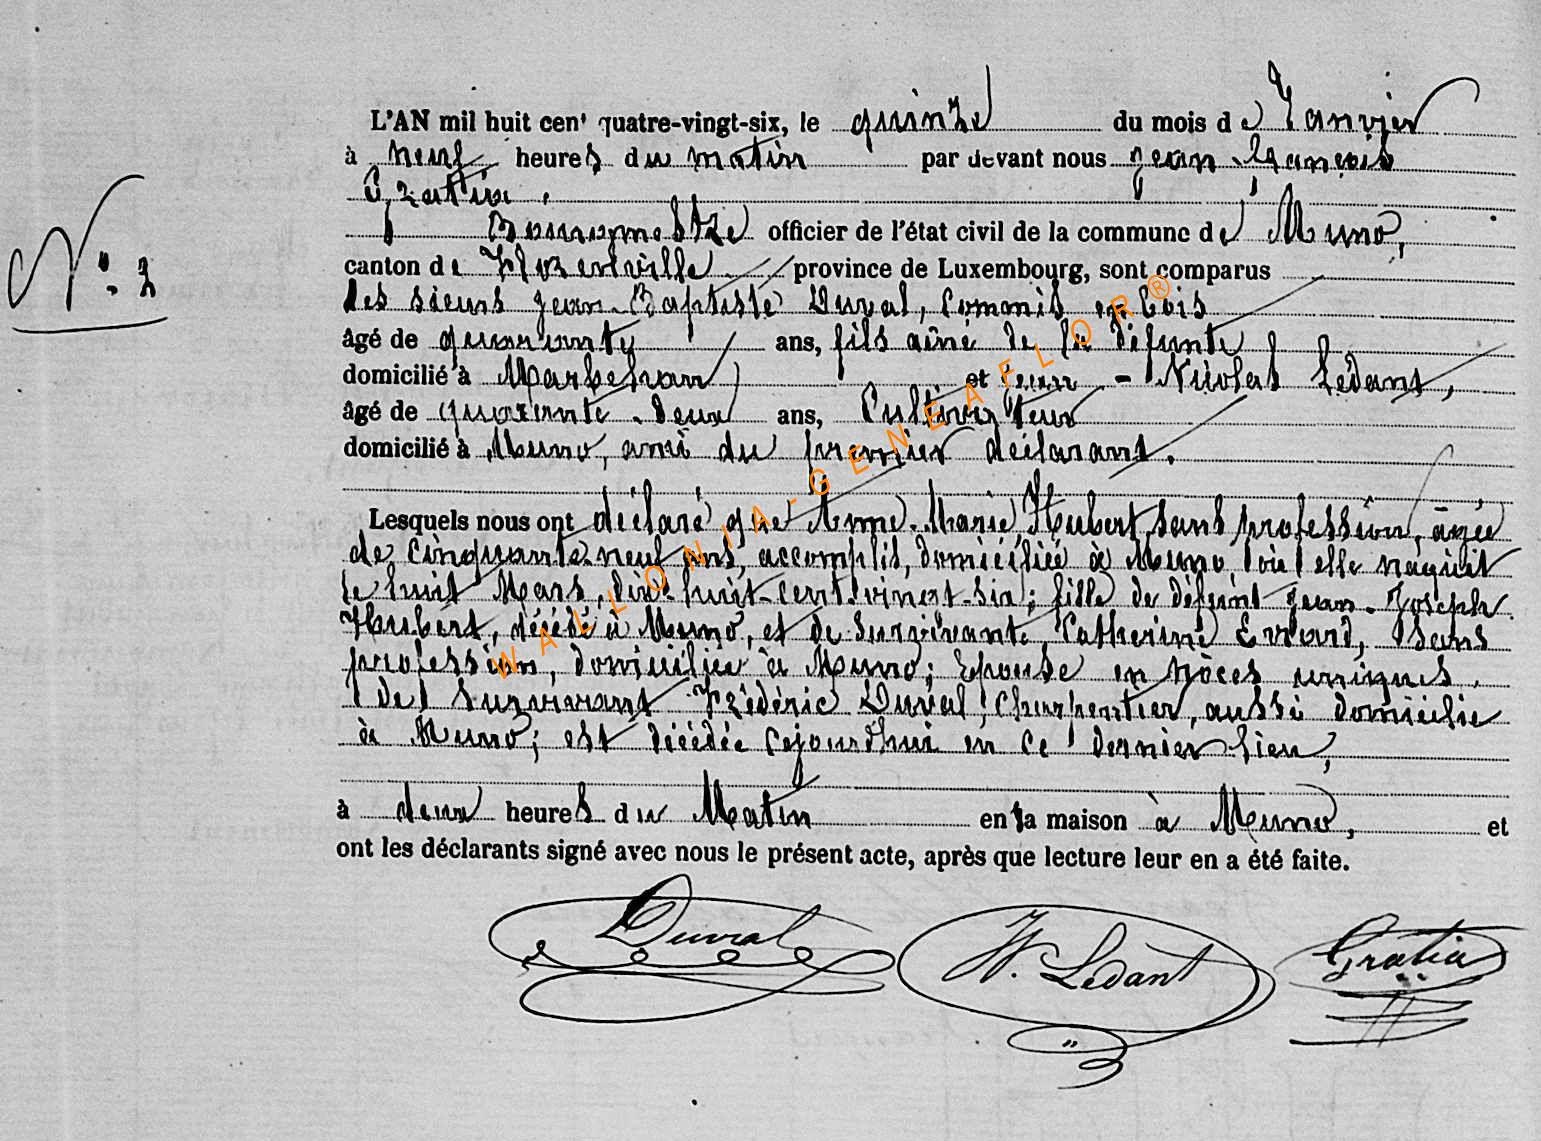 L'AN mil huit cent quatre-vingt-six, le quinze du mois de Janvier
à neuf heures du matin par devant nous Jean François
Gratia,
Bourgmestre officier de l'état civil de la commune de Muno,
canton de Florenville province de Luxembourg, sont comparus
Les sieurs Jean-Baptiste Duval, Commis en bois
âgé de quarante ans, fils aîné de la défunte
domicilié à Marbehan, et Jean-Nicolas Ledant,
âgé de quarante-deux ans, Cultivateur
domicilié à Muno, ami du premier déclarant.
Lesquels nous ont déclaré que Anne-Marie Hubert, sans profession, âgée
de cinquante-neuf ans, accomplis, domiciliée à Muno où elle naquit
le huit Mars, dix-huit-cent-vingt-six; fille de défunt Jean-Joseph
Hubert, décédé à Muno, et de survivante Catherine Evrard, sans
profession, domiciliée à Muno; Epouse en nôces uniques,
de survivant Frédéric Duval, Charpentier, aussi domicilié
à Muno; est décédée cejourd'hui en ce dernier lieu,
à deux heures du Matin en la maison à Muno, et
ont les déclarants signé avec nous le présent acte, après que lecture leur en a été faite.
N°. 2
Duval N. Ledant Gratia
WALLONIA-GENEAFLOR®